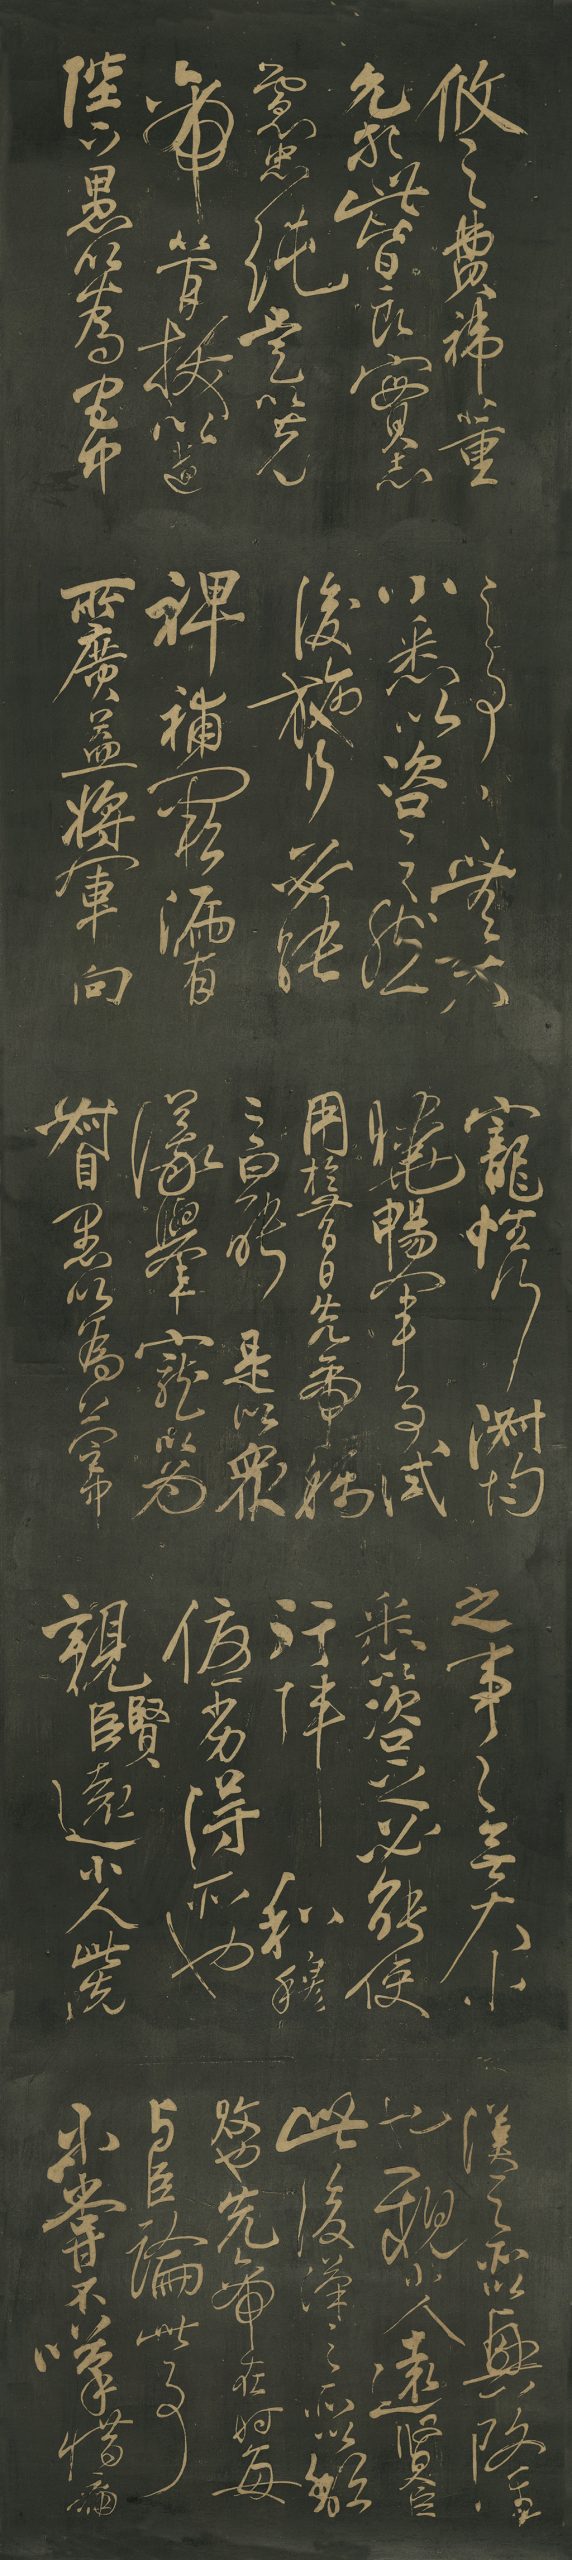 攸之費禕董
允等此皆良實志
慮忠純是以先
帝簡拔以遺
陛下愚以為宮中
之事々無大
小悉以咨之然
後施行必能
裨補闕漏有
所廣益將軍向
寵性行淑均
曉暢軍事試
用於昔日先帝稱
之曰能是以眾
議舉寵以為
督愚以為營中
之事々無大小
悉以咨之必能使
行陣和穆
優劣得所也
親賢臣遠小人此先
漢之所以興隆
也親小人遠賢臣
此後漢之所以傾
敗也先帝在時每
與臣論此事
未嘗不嘆惜痛